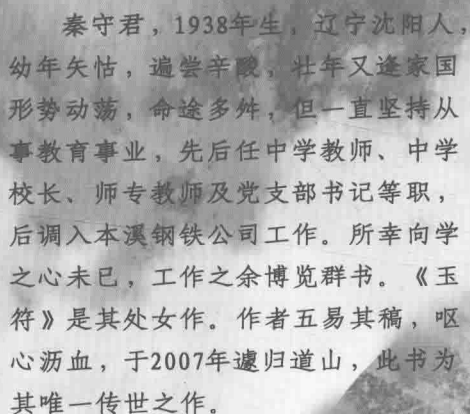 秦守君，1938年生，辽宁沈阳人，
幼年失怙，遍尝辛酸，壮年又逢家国
形势动荡，命途多舛，但一直坚持从
事教育事业，先后任中学教师、中学
校长、师专教师及党支部书记等职，
后调入本溪钢铁公司工作。所幸向学
之心未已，工作之余博览群书。《玉
符》是其处女作。作者五易其稿，呕
心沥血，于2007年遽归道山，此书为
其唯一传世之作。